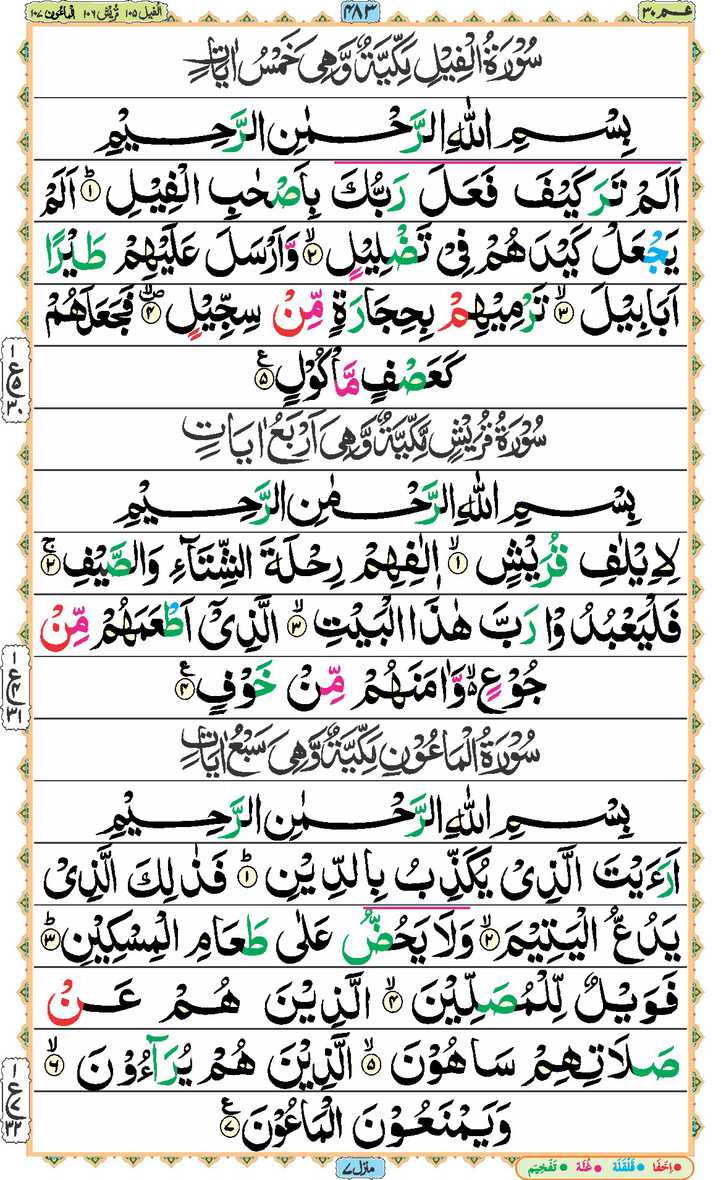 عـم ٣٠
٤٨٣
الفيل ١٠٥ قريش ١٠٦ الماعون ١٠٧
سُوْرَةُ الْفِيْلِ مَكِّيَّةٌ وَّهِىَ خَمْسُ اٰيَاتٍ
بِسْمِ اللّٰهِ الرَّحْمٰنِ الرَّحِيْمِ
اَلَمْ تَرَ كَيْفَ فَعَلَ رَبُّكَ بِاَصْحٰبِ الْفِيْلِ ؕ‏﴿۱﴾ اَلَمْ
يَجْعَلْ كَيْدَهُمْ فِىْ تَضْلِيْلٍ ۙ‏﴿۲﴾ وَّاَرْسَلَ عَلَيْهِمْ طَيْرًا
اَبَابِيْلَ ۙ‏﴿۳﴾ تَرْمِيْهِمْ بِحِجَارَةٍ مِّنْ سِجِّيْلٍ ۪ۙ‏﴿۴﴾ فَجَعَلَهُمْ
كَعَصْفٍ مَّاْكُوْلٍ ﴿۵﴾ ع
سُوْرَةُ قُرَيْشٍ مَّكِّيَّةٌ وَّهِىَ اَرْبَعُ اٰيَاتٍ
بِسْمِ اللّٰهِ الرَّحْمٰنِ الرَّحِيْمِ
لِاِيْلٰفِ قُرَيْشٍ ۙ‏﴿۱﴾ اٖلٰفِهِمْ رِحْلَةَ الشِّتَآءِ وَالصَّيْفِ ۚ‏﴿۲﴾
فَلْيَعْبُدُوْا رَبَّ هٰذَا الْبَيْتِ ۙ‏﴿۳﴾ الَّذِىْۤ اَطْعَمَهُمْ مِّنْ
جُوْعٍ ۙ وَّاٰمَنَهُمْ مِّنْ خَوْفٍ ﴿۴﴾ ع
سُوْرَةُ الْمَاعُوْنِ مَكِّيَّةٌ وَّهِىَ سَبْعُ اٰيَاتٍ
بِسْمِ اللّٰهِ الرَّحْمٰنِ الرَّحِيْمِ
اَرَءَيْتَ الَّذِىْ يُكَذِّبُ بِالدِّيْنِ ؕ‏﴿۱﴾ فَذٰلِكَ الَّذِىْ
يَدُعُّ الْيَتِيْمَ ۙ‏﴿۲﴾ وَلَا يَحُضُّ عَلٰى طَعَامِ الْمِسْكِيْنِ ؕ‏﴿۳﴾
فَوَيْلٌ لِّلْمُصَلِّيْنَ ۙ‏﴿۴﴾ الَّذِيْنَ هُمْ عَنْ
صَلَاتِهِمْ سَاهُوْنَ ۙ‏﴿۵﴾ الَّذِيْنَ هُمْ يُرَآءُوْنَ ۙ‏﴿۶﴾
وَيَمْنَعُوْنَ الْمَاعُوْنَ ﴿۷﴾ ع
منزل ٧
• اِخفَا • قَلْقَلَة • غُنَّة • تَفْخِيْم